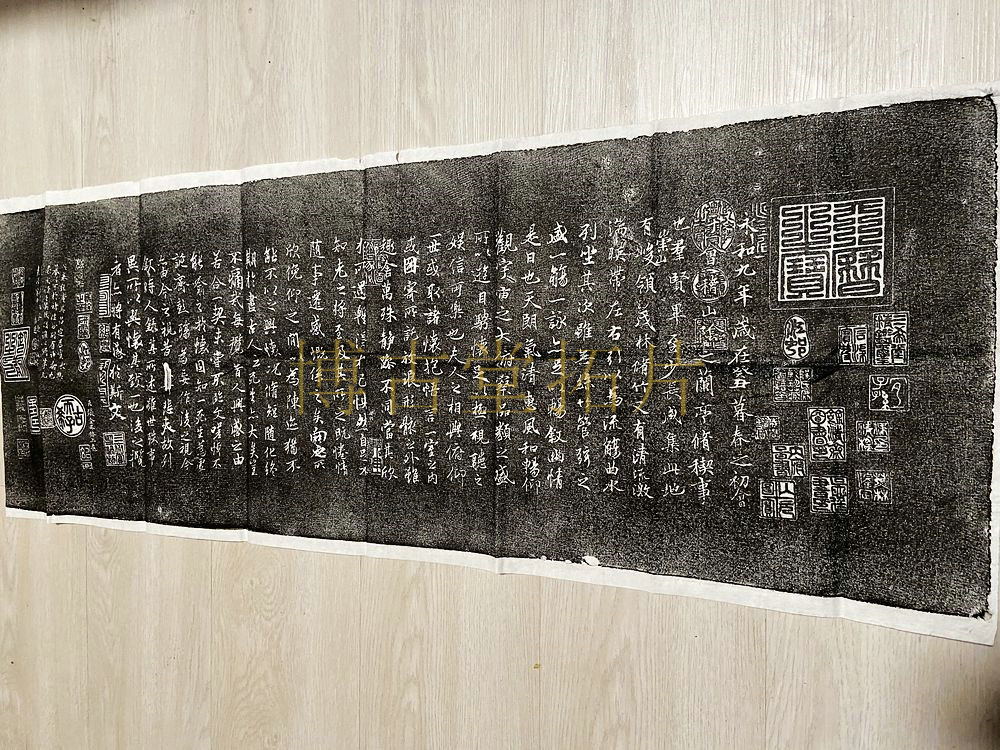 永和九年歲在癸丑暮春之初會
于會稽山陰之蘭亭脩稧事
也羣賢畢至少長咸集此地
有崇山峻領茂林脩竹又有清流激
湍暎帶左右引以為流觴曲水
列坐其次雖無絲竹管弦之
盛一觴一詠亦足以暢敘幽情
是日也天朗氣清惠風和暢仰
觀宇宙之大俯察品類之盛
所以遊目騁懷足以極視聽之
娛信可樂也夫人之相與俯仰
一世或取諸懷抱悟言一室之內
或因寄所託放浪形骸之外雖
趣舍萬殊靜躁不同當其欣
於所遇蹔得於己怏然自足不
知老之將至及其所之既惓情
隨事遷感慨係之矣向之所
欣俛仰之閒以為陳迹猶不
能不以之興懷況脩短隨化終
期於盡古人云死生亦大矣豈
不痛哉每攬昔人興感之由
若合一契未嘗不臨文嗟悼不
能喻之於懷固知一死生為虛
誕齊彭殤為妄作後之視今
亦由今之視昔悲夫故列
敘時人錄其所述雖世殊事
異所以興懷其致一也後之攬
者亦將有感於斯文
博古堂拓片